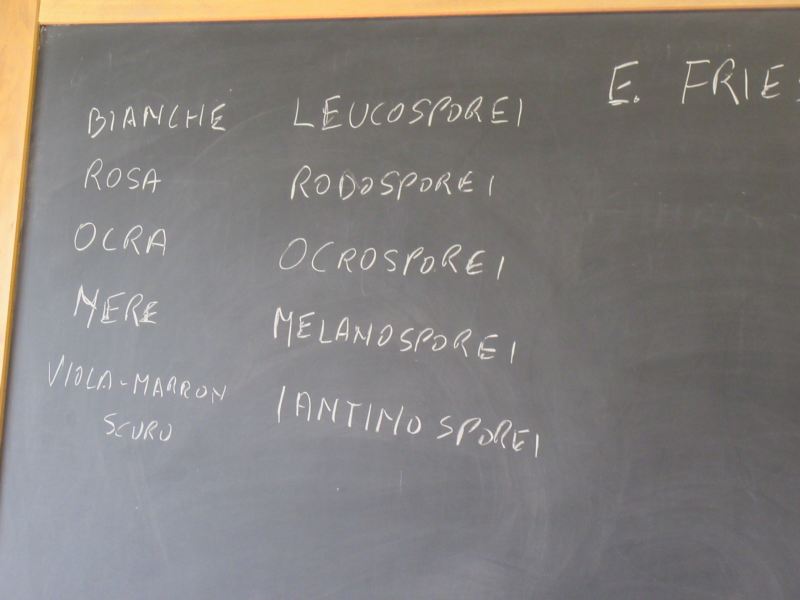 BIANCHE LEUCOSPOREI E. FRIES
ROSA RODOSPOREI
OCRA OCROSPOREI
NERE MELANOSPOREI
VIOLA-MARRON IANTINOSPOREI
SCURO